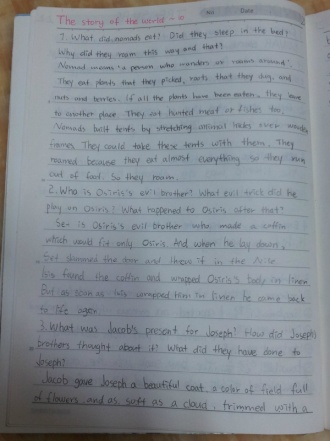 No. Date
The story of the world - ①
1. What did nomads eat? Did they sleep in the bed?
Why did they roam this way and that?
Nomad means "a person who wanders or roams around".
They eat plants that they picked, roots that they dug, and
nuts and berries. If all the plants have been eaten, they
to another place. They eat hunted meat or fishes too.
Nomads built tents by stretching animal hides over wooden
frames. They could take these tents with them. They
roamed because they eat almost everything so they run
out of food. So they roam.
2. Who is Osiris's evil brother? What evil trick did he
play on Osiris? What happened to Osiris after that?
Set is Osiris's evil brother who made a coffin
which would fit only Osiris. And when he lay down,
Set slammed the door and threw it in the Nile.
Isis found the coffin and wrapped Osiris's body in linen.
But as soon as Isis wrapped him in linen he came back
to life again.
3. What was Jacob's present for Joseph? How did Joseph's
brothers thought about it? What did they have done to
Joseph?
Jacob gave Joseph a beautiful coat, a color of field full
of flowers, and as soft as a cloud, trimmed with a